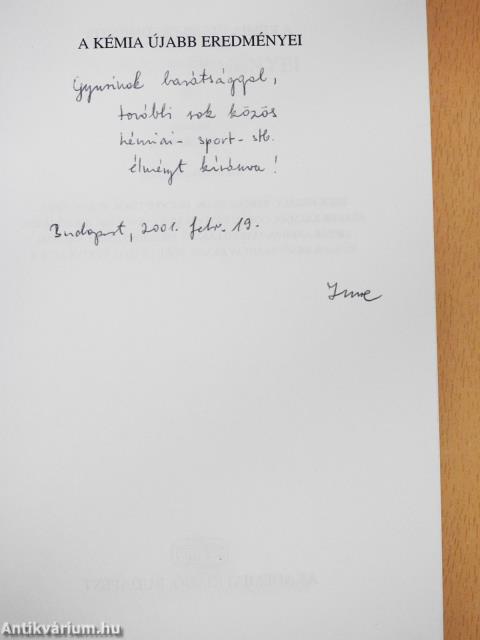 A KÉMIA ÚJABB EREDMÉNYEI
Gyurinak barátsággal,
további sok közös
kémiai- sport- stb.
élményt kívánva!
Budapest, 2001. febr. 19.
Imre
Antikvárium.hu